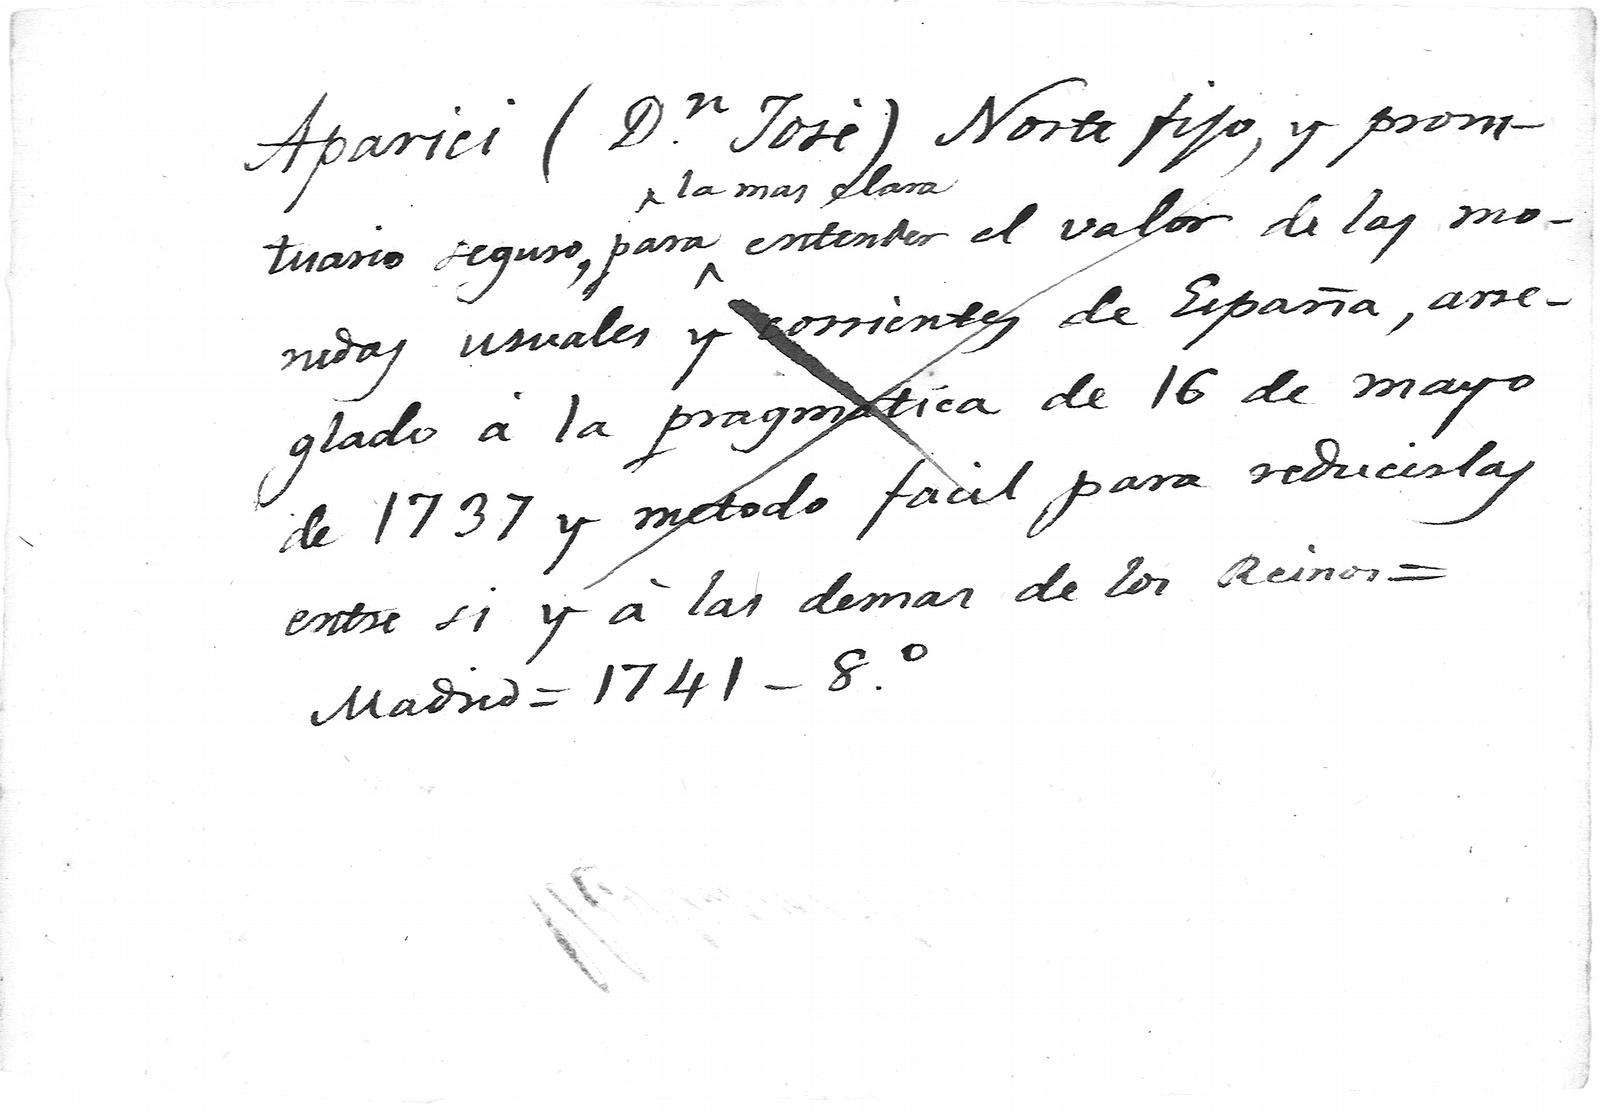 Aparici (D.n José) Norte fijo, y prom-
la mas clara
tuario seguro, para entender el valor de las mo-
nedas usuales y corrientes de España, arre-
glado á la pragmática de 16 de mayo
de 1737 y metodo facil para reducirlas
entre si y à las demas de los Reinos=
Madrid= 1741 - 8.º